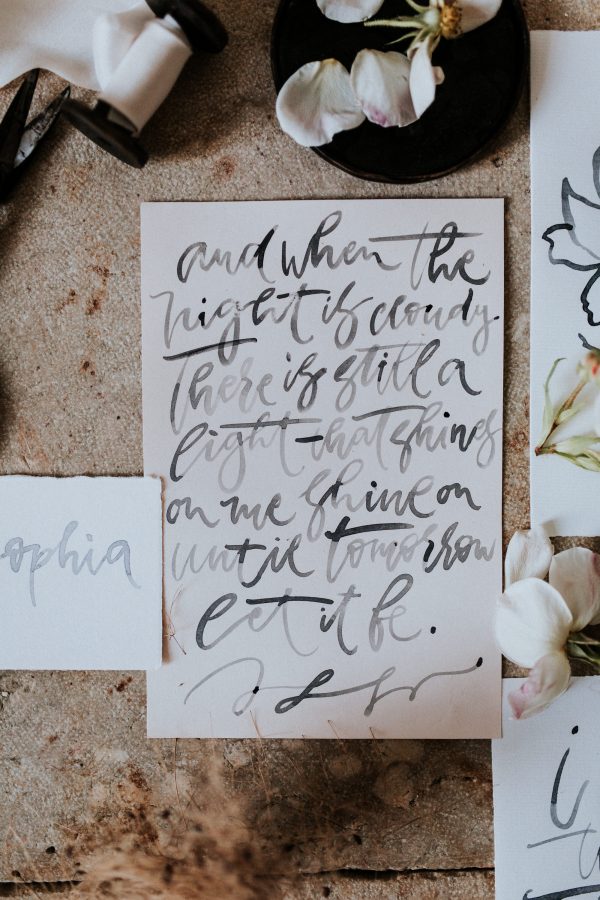 and when the
night is cloudy.
There is still a
light - that shines
on me shine on
until tomorrow
let it be.
ophia